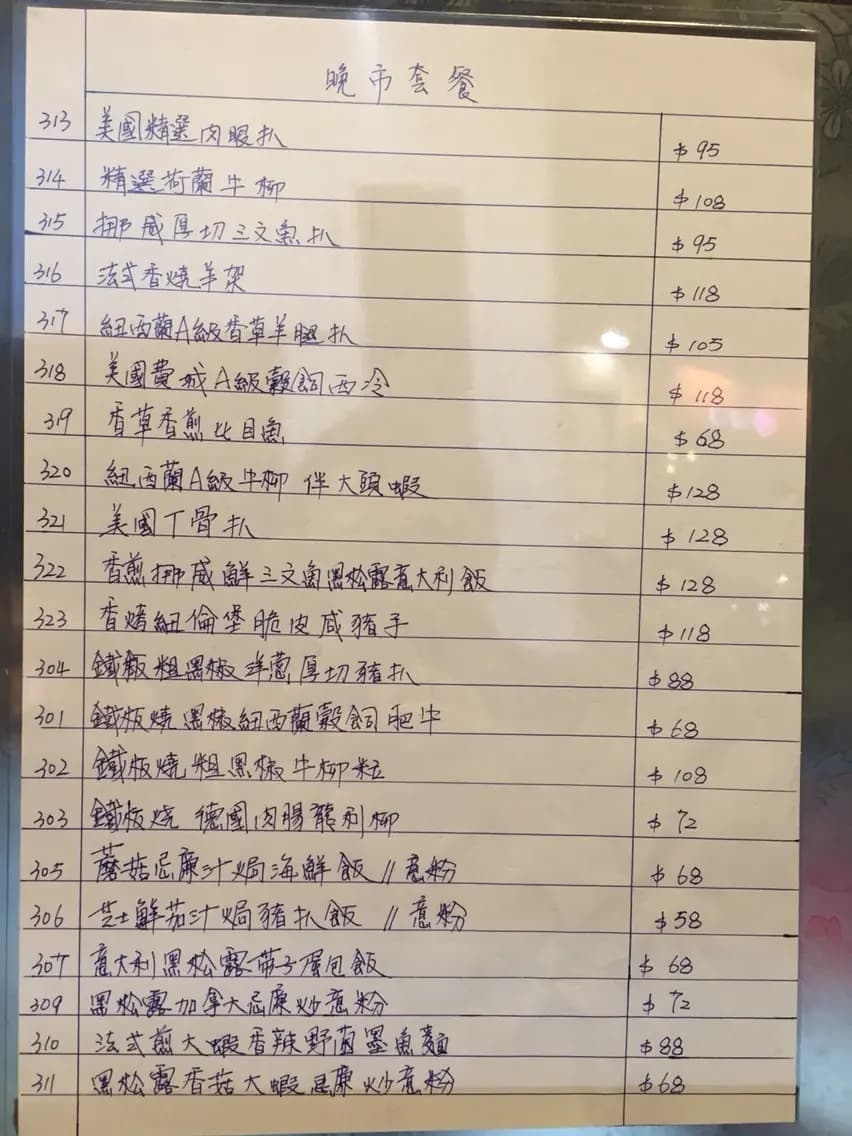 晚市套餐
313 美國精選肉眼扒 $95
314 精選荷蘭牛柳 $108
315 挪威厚切三文魚扒 $95
316 法式香燒羊架 $118
317 紐西蘭A級香草羊腿扒 $105
318 美國費城A級穀飼西冷 $118
319 香草香煎比目魚 $68
320 紐西蘭A級牛柳 伴大頭蝦 $128
321 美國T骨扒 $128
322 香煎挪威鮮三文魚黑松露意大利飯 $128
323 香烤紐倫堡脆皮咸豬手 $118
304 鐵板粗黑椒洋蔥厚切豬扒 $88
301 鐵板燒黑椒紐西蘭穀飼肥牛 $68
302 鐵板燒粗黑椒牛柳粒 $108
303 鐵板烧 德國肉腸龍利柳 $72
305 蘑菇忌廉汁焗海鮮飯 // 意粉 $68
306 芝士鮮茄汁焗豬扒飯 // 意粉 $58
307 意大利黑松露带子蛋包飯 $68
309 黑松露加拿大忌廉炒意粉 $72
310 法式煎大蝦香辣野菌墨魚麵 $88
311 黑松露香菇大蝦忌廉炒意粉 $68